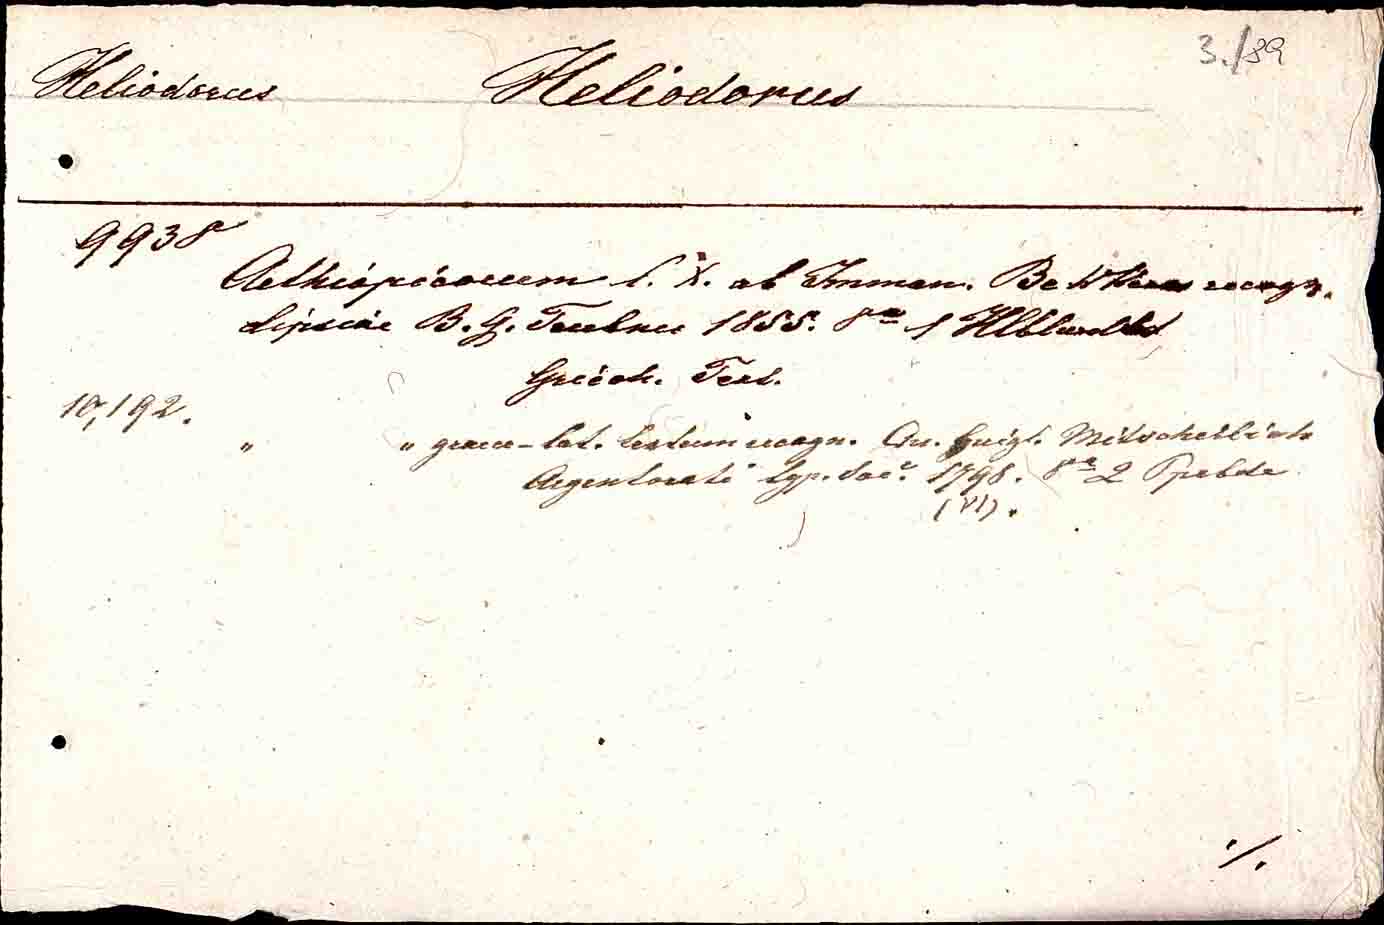 3./89
Heliodorus Heliodorus
9938
Aethiopicorum l. X. ab Imman. Bekkero recogn.
Lipsiae B. G. Teubner 1855. 8° 1 Hlblwdbd
Griech. Text.
10,192.
" " graece-lat. textum recogn. Chr. Guigl. Mitscherlich
Argentorati typ. Soc. 1798. 8° 2 Ppebde
(VI).
./.